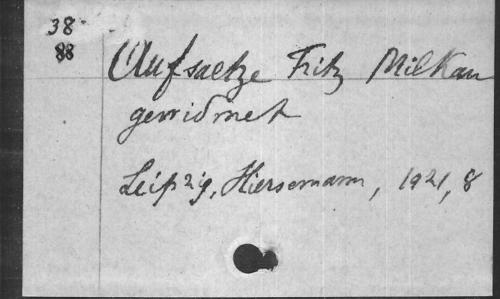 38
88
Aufsaetze Fritz Milkau
gewidmet
Leipzig, Hiersemann, 1921, 8